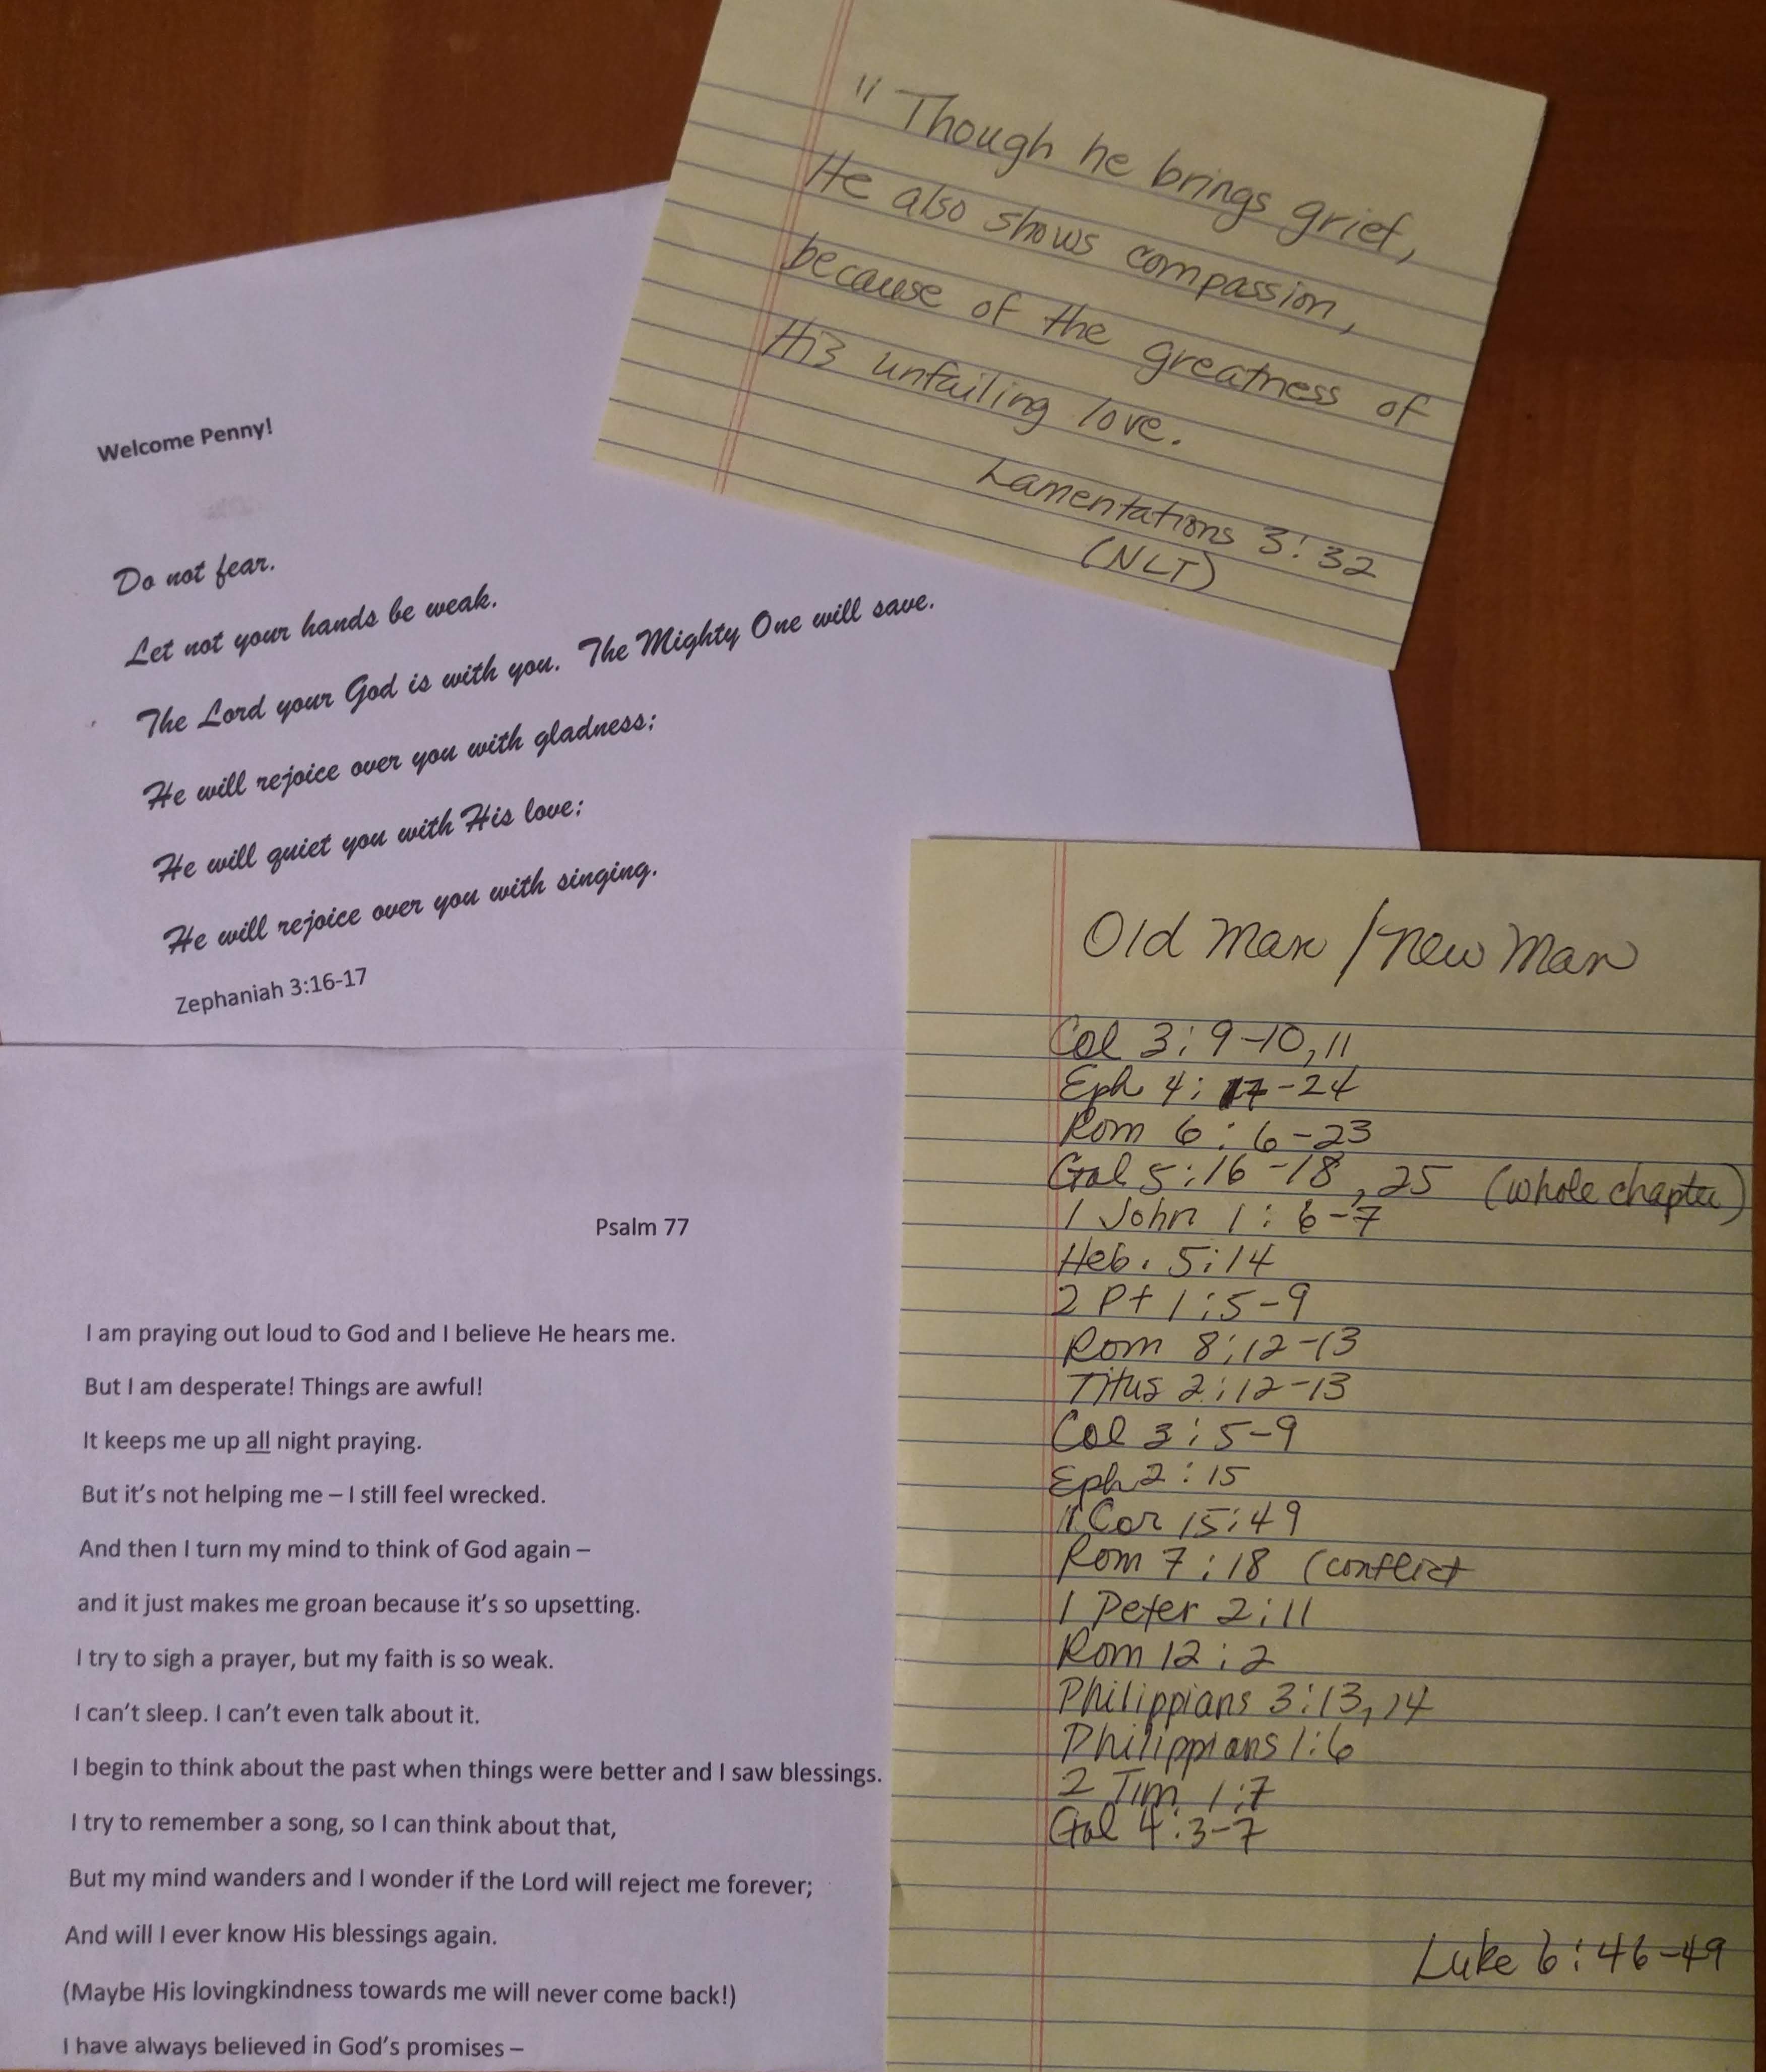 "Though he brings grief,
He also shows compassion,
because of the greatness of
His unfailing love.
Lamentations 3:32
(NLT)
Welcome Penny!
Do not fear.
Let not your hands be weak.
The Lord your God is with you. The Mighty One will save.
He will rejoice over you with gladness;
He will quiet you with His love;
He will rejoice over you with singing.
Zephaniah 3:16-17
Psalm 77
I am praying out loud to God and I believe He hears me.
But I am desperate! Things are awful!
It keeps me up all night praying.
But it's not helping me – I still feel wrecked.
And then I turn my mind to think of God again –
and it just makes me groan because it's so upsetting.
I try to sigh a prayer, but my faith is so weak.
I can't sleep. I can't even talk about it.
I begin to think about the past when things were better and I saw blessings.
I try to remember a song, so I can think about that,
But my mind wanders and I wonder if the Lord will reject me forever;
And will I ever know His blessings again.
(Maybe His lovingkindness towards me will never come back!)
I have always believed in God's promises –
Old Man / New Man
Col 3:9-10,11
Eph 4:17-24
Rom 6:6-23
Gal 5:16-18,25 (whole chapter)
1 John 1:6-7
Heb. 5:14
2 Pt 1:5-9
Rom 8:12-13
Titus 2:12-13
Col 3:5-9
Eph 2:15
1 Cor 15:49
Rom 7:18 (conflict
1 Peter 2:11
Rom 12:2
Philippians 3:13,14
Philippians 1:6
2 Tim 1:7
Gal 4:3-7
Luke 6:46-49